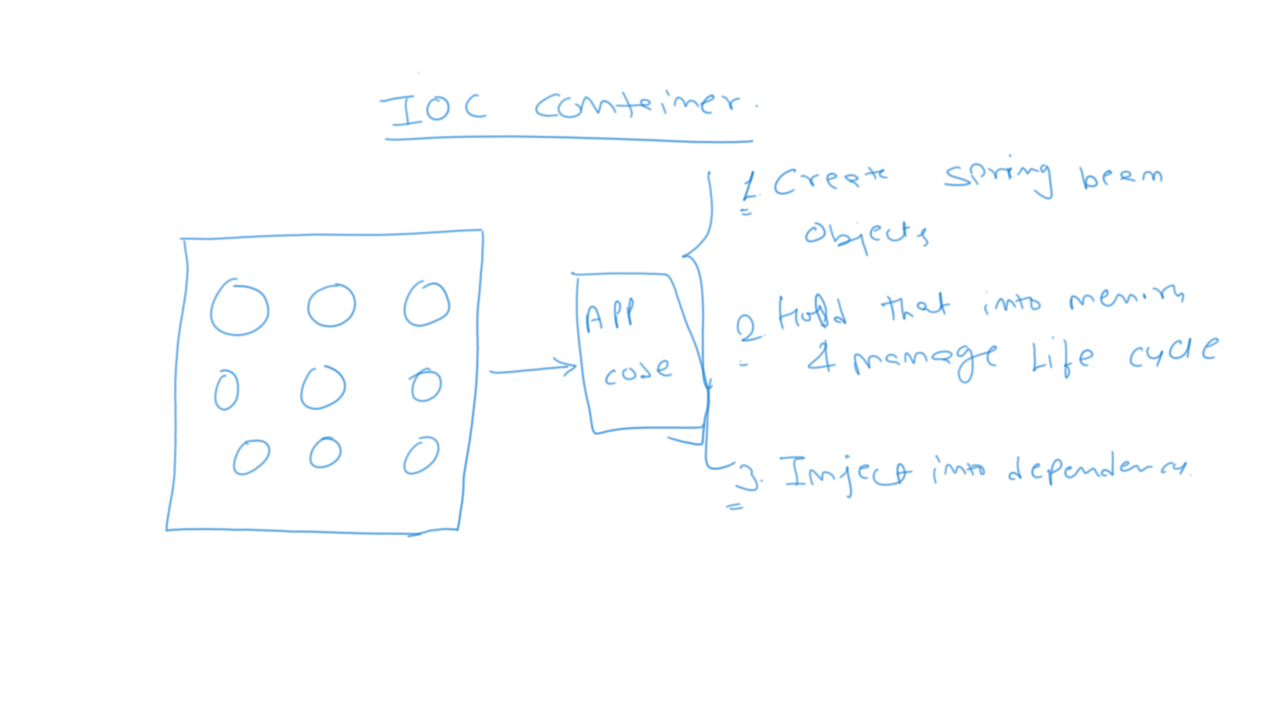 IOC container.
APP
code
1. Create spring bean
objects
2. Hold that into memory
& manage Life cycle
3. Inject into dependency.